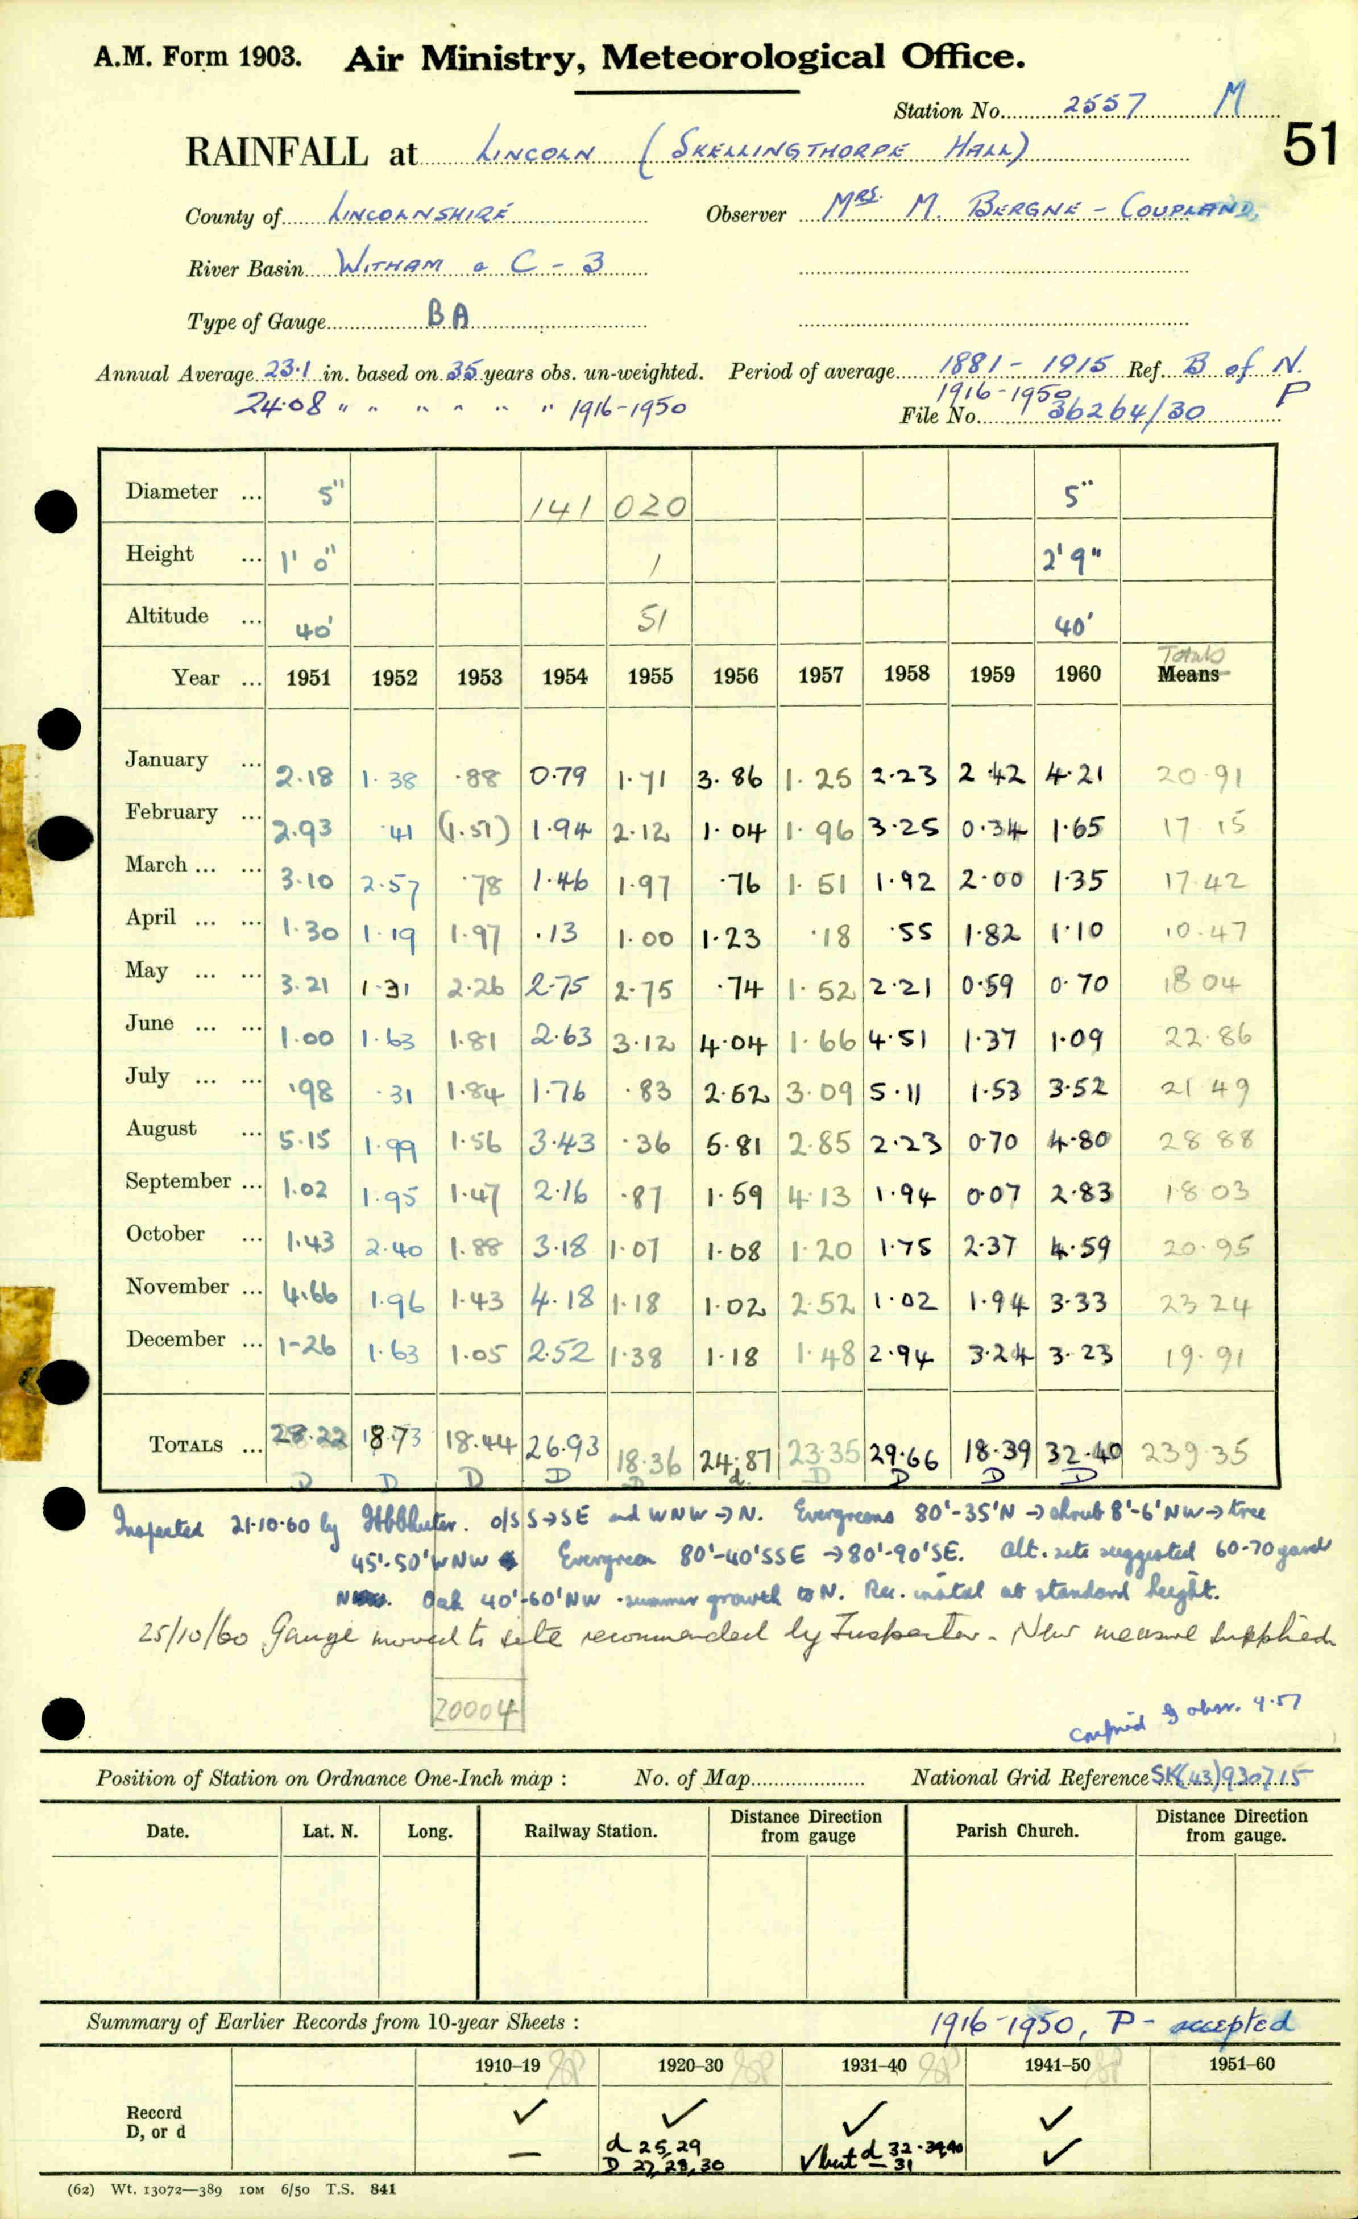 A.M. Form 1903. Air Ministry, Meteorological Office.
Station No. 2557 M
51
RAINFALL at LINCOLN (SKELLINGTHORPE HALL)
County of LINCOLNSHIRE Observer MRS. M. BERGNE - COUPLAND.
River Basin WITHAM a C - 3
Type of Gauge BA
Annual Average 23.1 in. based on 35 years obs. un-weighted. Period of average 1881 - 1915 Ref. B of N.
24.08 " " " " " " 1916-1950 1916-1950 P
File No. 36264/30
Diameter ... 5" 141 020 5"
Height ... 1' 0" 1 2' 9"
Altitude ... 40' 51 40'
Totals
Year ... 1951 1952 1953 1954 1955 1956 1957 1958 1959 1960 Means
January ... 2.18 1.38 .88 0.79 1.71 3.86 1.25 2.23 2.42 4.21 20.91
February ... 2.93 .41 (1.51) 1.94 2.12 1.04 1.96 3.25 0.34 1.65 17 15
March ... ... 3.10 2.57 .78 1.46 1.97 .76 1.51 1.92 2.00 1.35 17.42
April ... ... 1.30 1.19 1.97 .13 1.00 1.23 .18 .55 1.82 1.10 10.47
May ... ... 3.21 1.31 2.26 2.75 2.75 .74 1.52 2.21 0.59 0.70 18 04
June ... ... 1.00 1.63 1.81 2.63 3.12 4.04 1.66 4.51 1.37 1.09 22.86
July ... ... .98 .31 1.84 1.76 .83 2.52 3.09 5.11 1.53 3.52 21 49
August ... 5.15 1.99 1.56 3.43 .36 5.81 2.85 2.23 0.70 4.80 28 88
September ... 1.02 1.95 1.47 2.16 .87 1.59 4.13 1.94 0.07 2.83 18 03
October ... 1.43 2.40 1.88 3.18 1.07 1.08 1.20 1.75 2.37 4.59 20.95
November ... 4.66 1.96 1.43 4.18 1.18 1.02 2.52 1.02 1.94 3.33 23 24
December ... 1-26 1.63 1.05 2.52 1.38 1.18 1.48 2.94 3.24 3.23 19.91
TOTALS ... 28.22 18.73 18.44 26.93 18.36 24.87 23.35 29.66 18.39 32.40 239.35
D D D D D d. D D D D
Inspected 21.10.60 by o/s S→SE and WNW→N. Evergreens 80'-35'N → shrub 8'-6'NW → tree
45'-50'WNW Evergreen 80'-40'SSE → 80'-90'SE. Alt. site suggested 60-70 yards
N Oak 40'-60'NW - summer growth to N. Rec. instal at standard height.
25/10/60 Gauge moved to site recommended by Inspector. New measure supplied
20004
confirmed by obsr. 4.57
Position of Station on Ordnance One-Inch map : No. of Map National Grid Reference SK(43)930715
Date. Lat. N. Long. Railway Station. Distance Direction from gauge Parish Church. Distance Direction from gauge.
Summary of Earlier Records from 10-year Sheets : 1916-1950, P - accepted
1910–19 1920–30 1931–40 1941–50 1951–60
Record ✓ ✓ ✓ ✓
D, or d — d 25,29 ✓ but d 32-39,40 ✓
D 27,28,30 — 31
(62) Wt. 13072—389 10M 6/50 T.S. 841